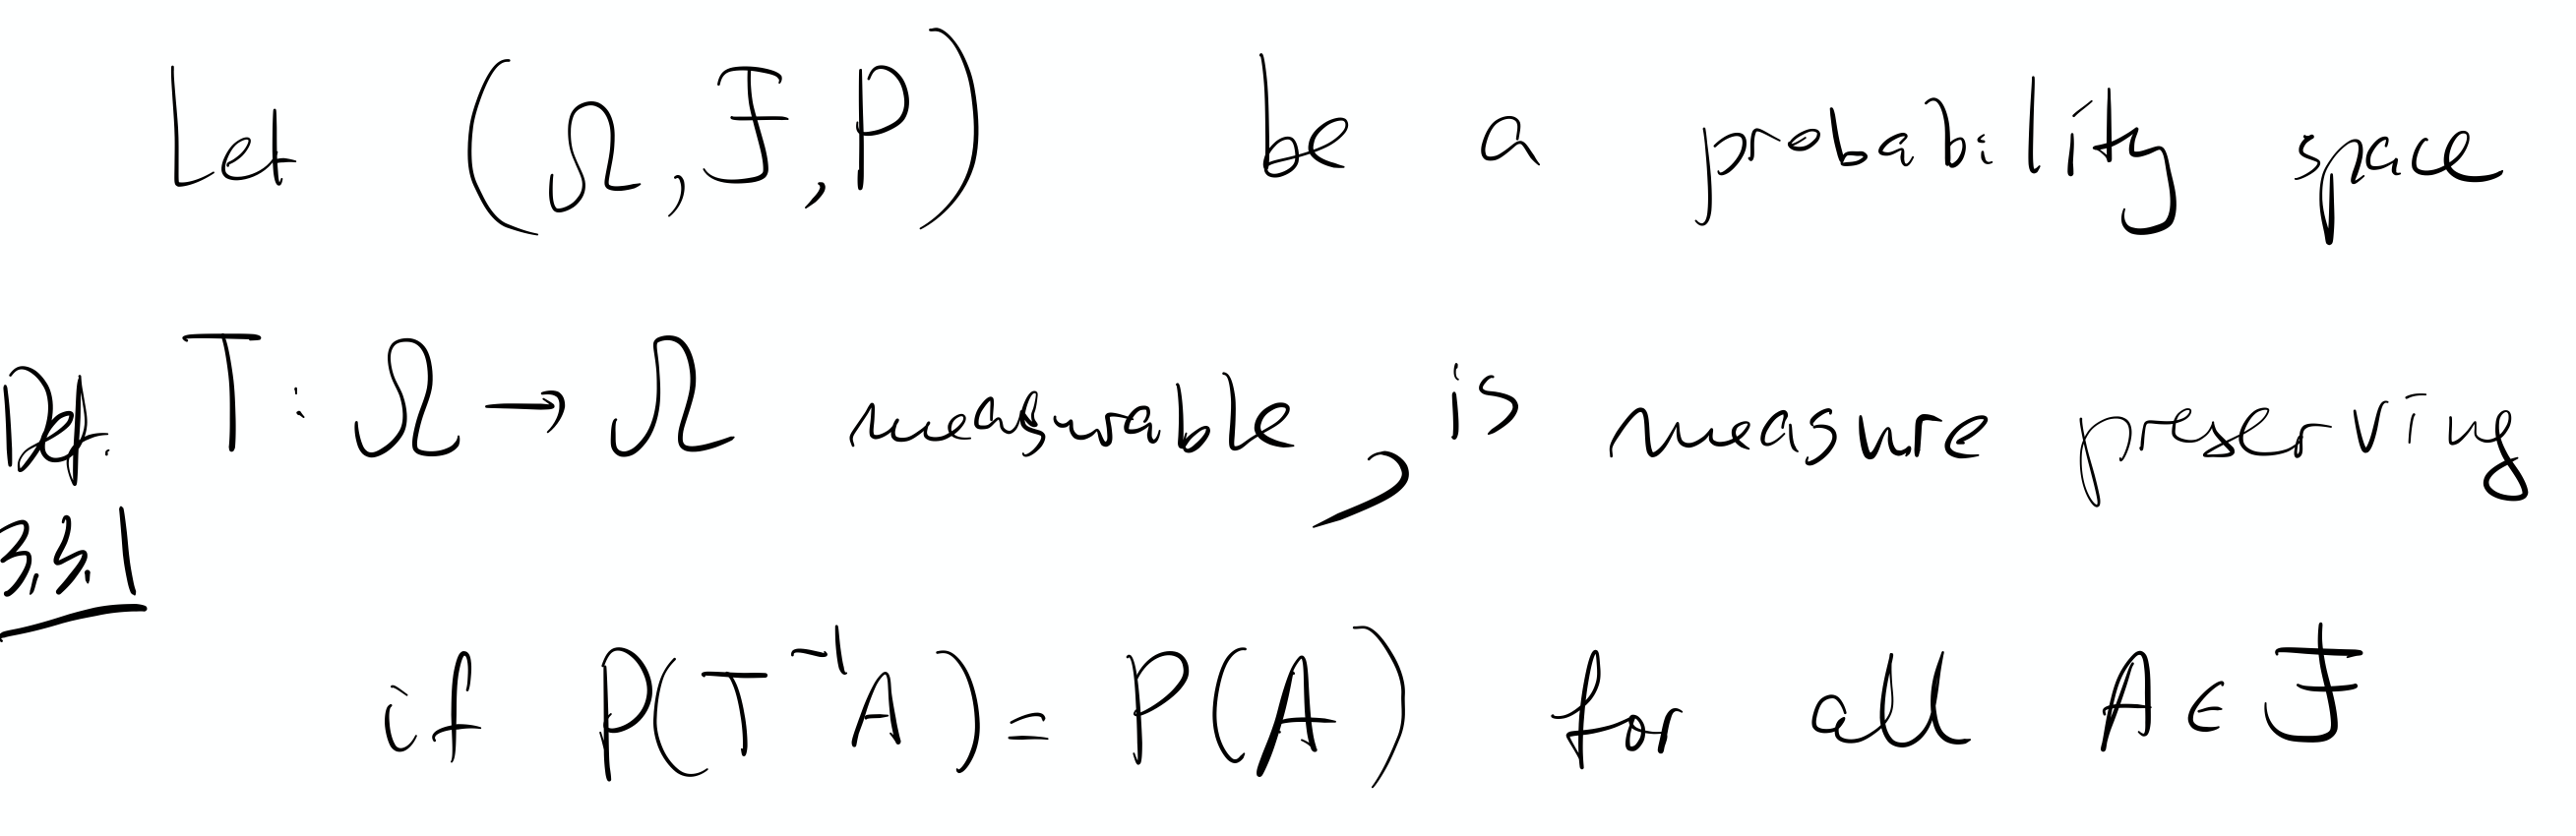 Let (Ω, F, P) be a probability space
Def. T: Ω → Ω measurable, is measure preserving
3.3.1
if P(T⁻¹A) = P(A) for all A ∈ F